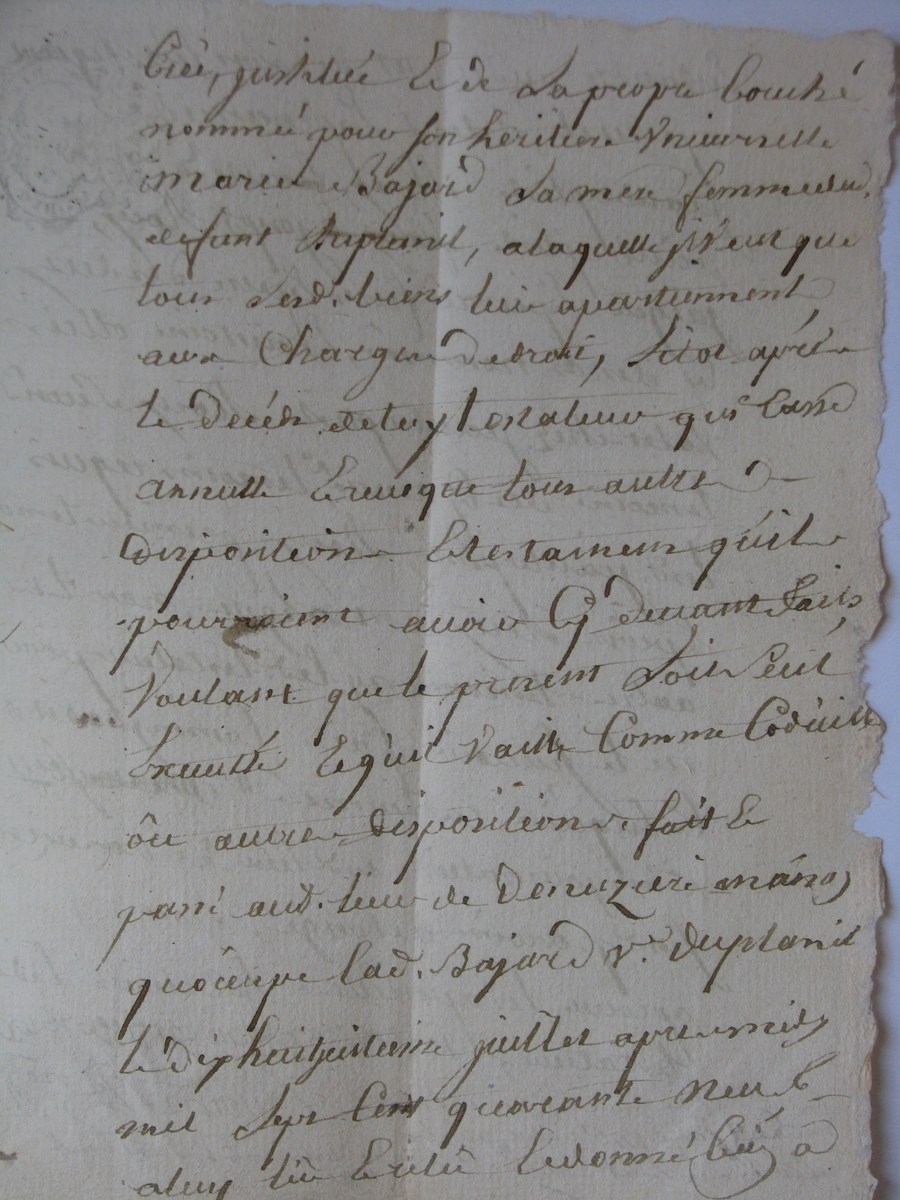 Créé, justituée Et de Sa propre bouche
nommée pour son heritiere Vniverselle
marie Bajard Sa mere femme dud.
defunt Duplanil, a laquelle jl Veut que
tous Sesd. biens luy apartiennent
aux Charges de droit, Sitot aprés
le Decéds de luy testateur qui Casse
annulle Et revoque tous autres
dispositions Et testamens qu'il
pourroient avoir Cy devant Faits
Voulant que le present Soit Seul
Executté Et qu'il Vaille Comme Codicille
ôu autres dispositions. fait Et
passé aud. lieu de Denuzieré maison
qu'occupe lad. Bajard Ve. duplanil
le dixhuitjesme juillet apres midy
mil Sept Cent quarante neuf
a luy lû Et relû Et donné